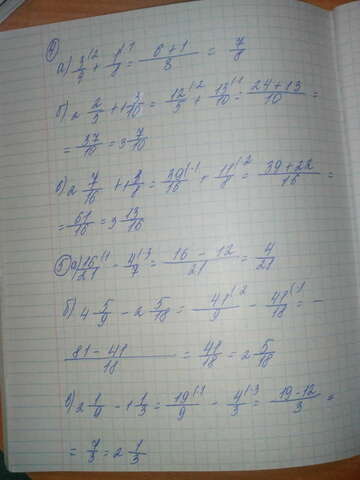 ④
а) 3/4 (·2 + 1/8 (·1 = 6+1/8 = 7/8
б) 2 2/5 + 1 3/10 = 12/5 (·2 + 13/10 (·1 = 24+13/10 =
= 37/10 = 3 7/10
в) 2 7/16 + 1 3/8 = 39/16 (·1 + 11/8 (·2 = 39+22/16 =
= 61/16 = 3 13/16
⑤ а) 16/21 (·1 - 4/7 (·3 = 16-12/21 = 4/21
б) 4 5/9 - 2 5/18 = 41/9 (·2 - 41/18 (·1 = -
81-41/18 = 41/18 = 2 5/18
в) 2 1/9 - 1 1/3 = 19/9 (·1 - 4/3 (·3 = 19-12/3 =
= 7/3 = 2 1/3